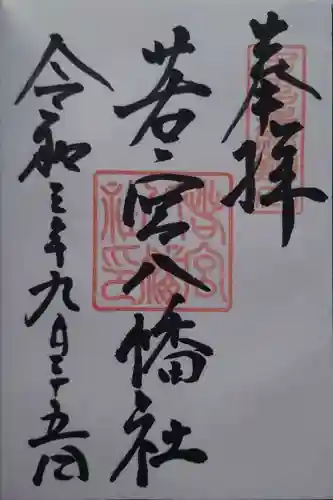 奉拝
若宮八幡社
令和三年九月二十五日
若宮
八幡
社印